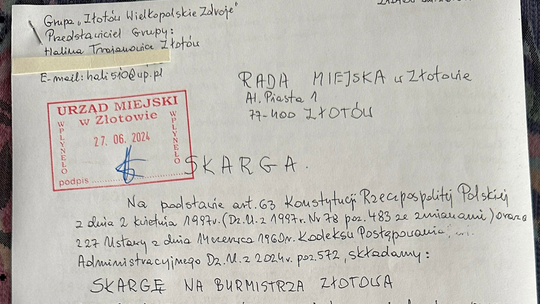 Grupa „Złotów Wielkopolskie Zdroje"
Przedstawiciel Grupy:
Halina Trojanowicz Złotów
E-mail: hali510@up.pl
RADA MIEJSKA w Złotowie
Al. Piasta 1
77-400 ZŁOTÓW
URZĄD MIEJSKI
w Złotowie
WPŁYNĘŁO
27. 06. 2024
WPŁYNĘŁO
podpis
SKARGA.
Na podstawie art. 63 Konstytucji Rzeczpospolitej Polskiej
z dnia 2 kwietnia 1997r. (Dz.U. z 1997r. Nr 78 poz. 483 ze zmianami) oraz
227 Ustawy z dnia 14 czerwca 1960r. Kodeksu Postępowania
Administracyjnego Dz.U. z 2024r. poz. 572, składamy:
SKARGĘ NA BURMISTRZA ZŁOTOWA